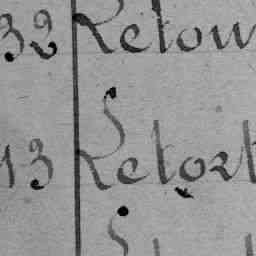 32 Retou
13 Retort